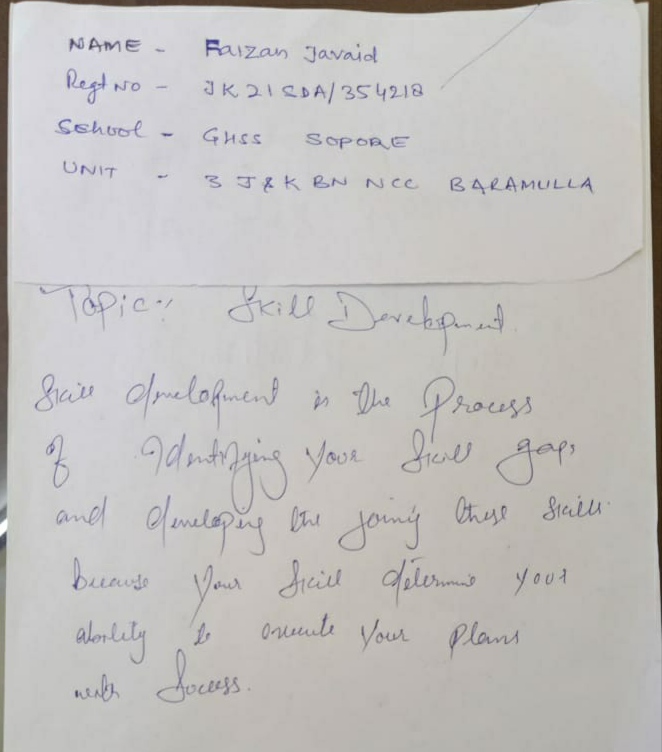 NAME - Faizan Javaid
Regt No - JK21SDA/354218
School - GHSS SOPORE
UNIT - 3 J&K BN NCC BARAMULLA
Topic:, Skill Development.
Skill development is the Process
of Identifying your Skill gaps
and developing the these Skills.
because your Skill determine your
ability to execute your Plans
with Success.